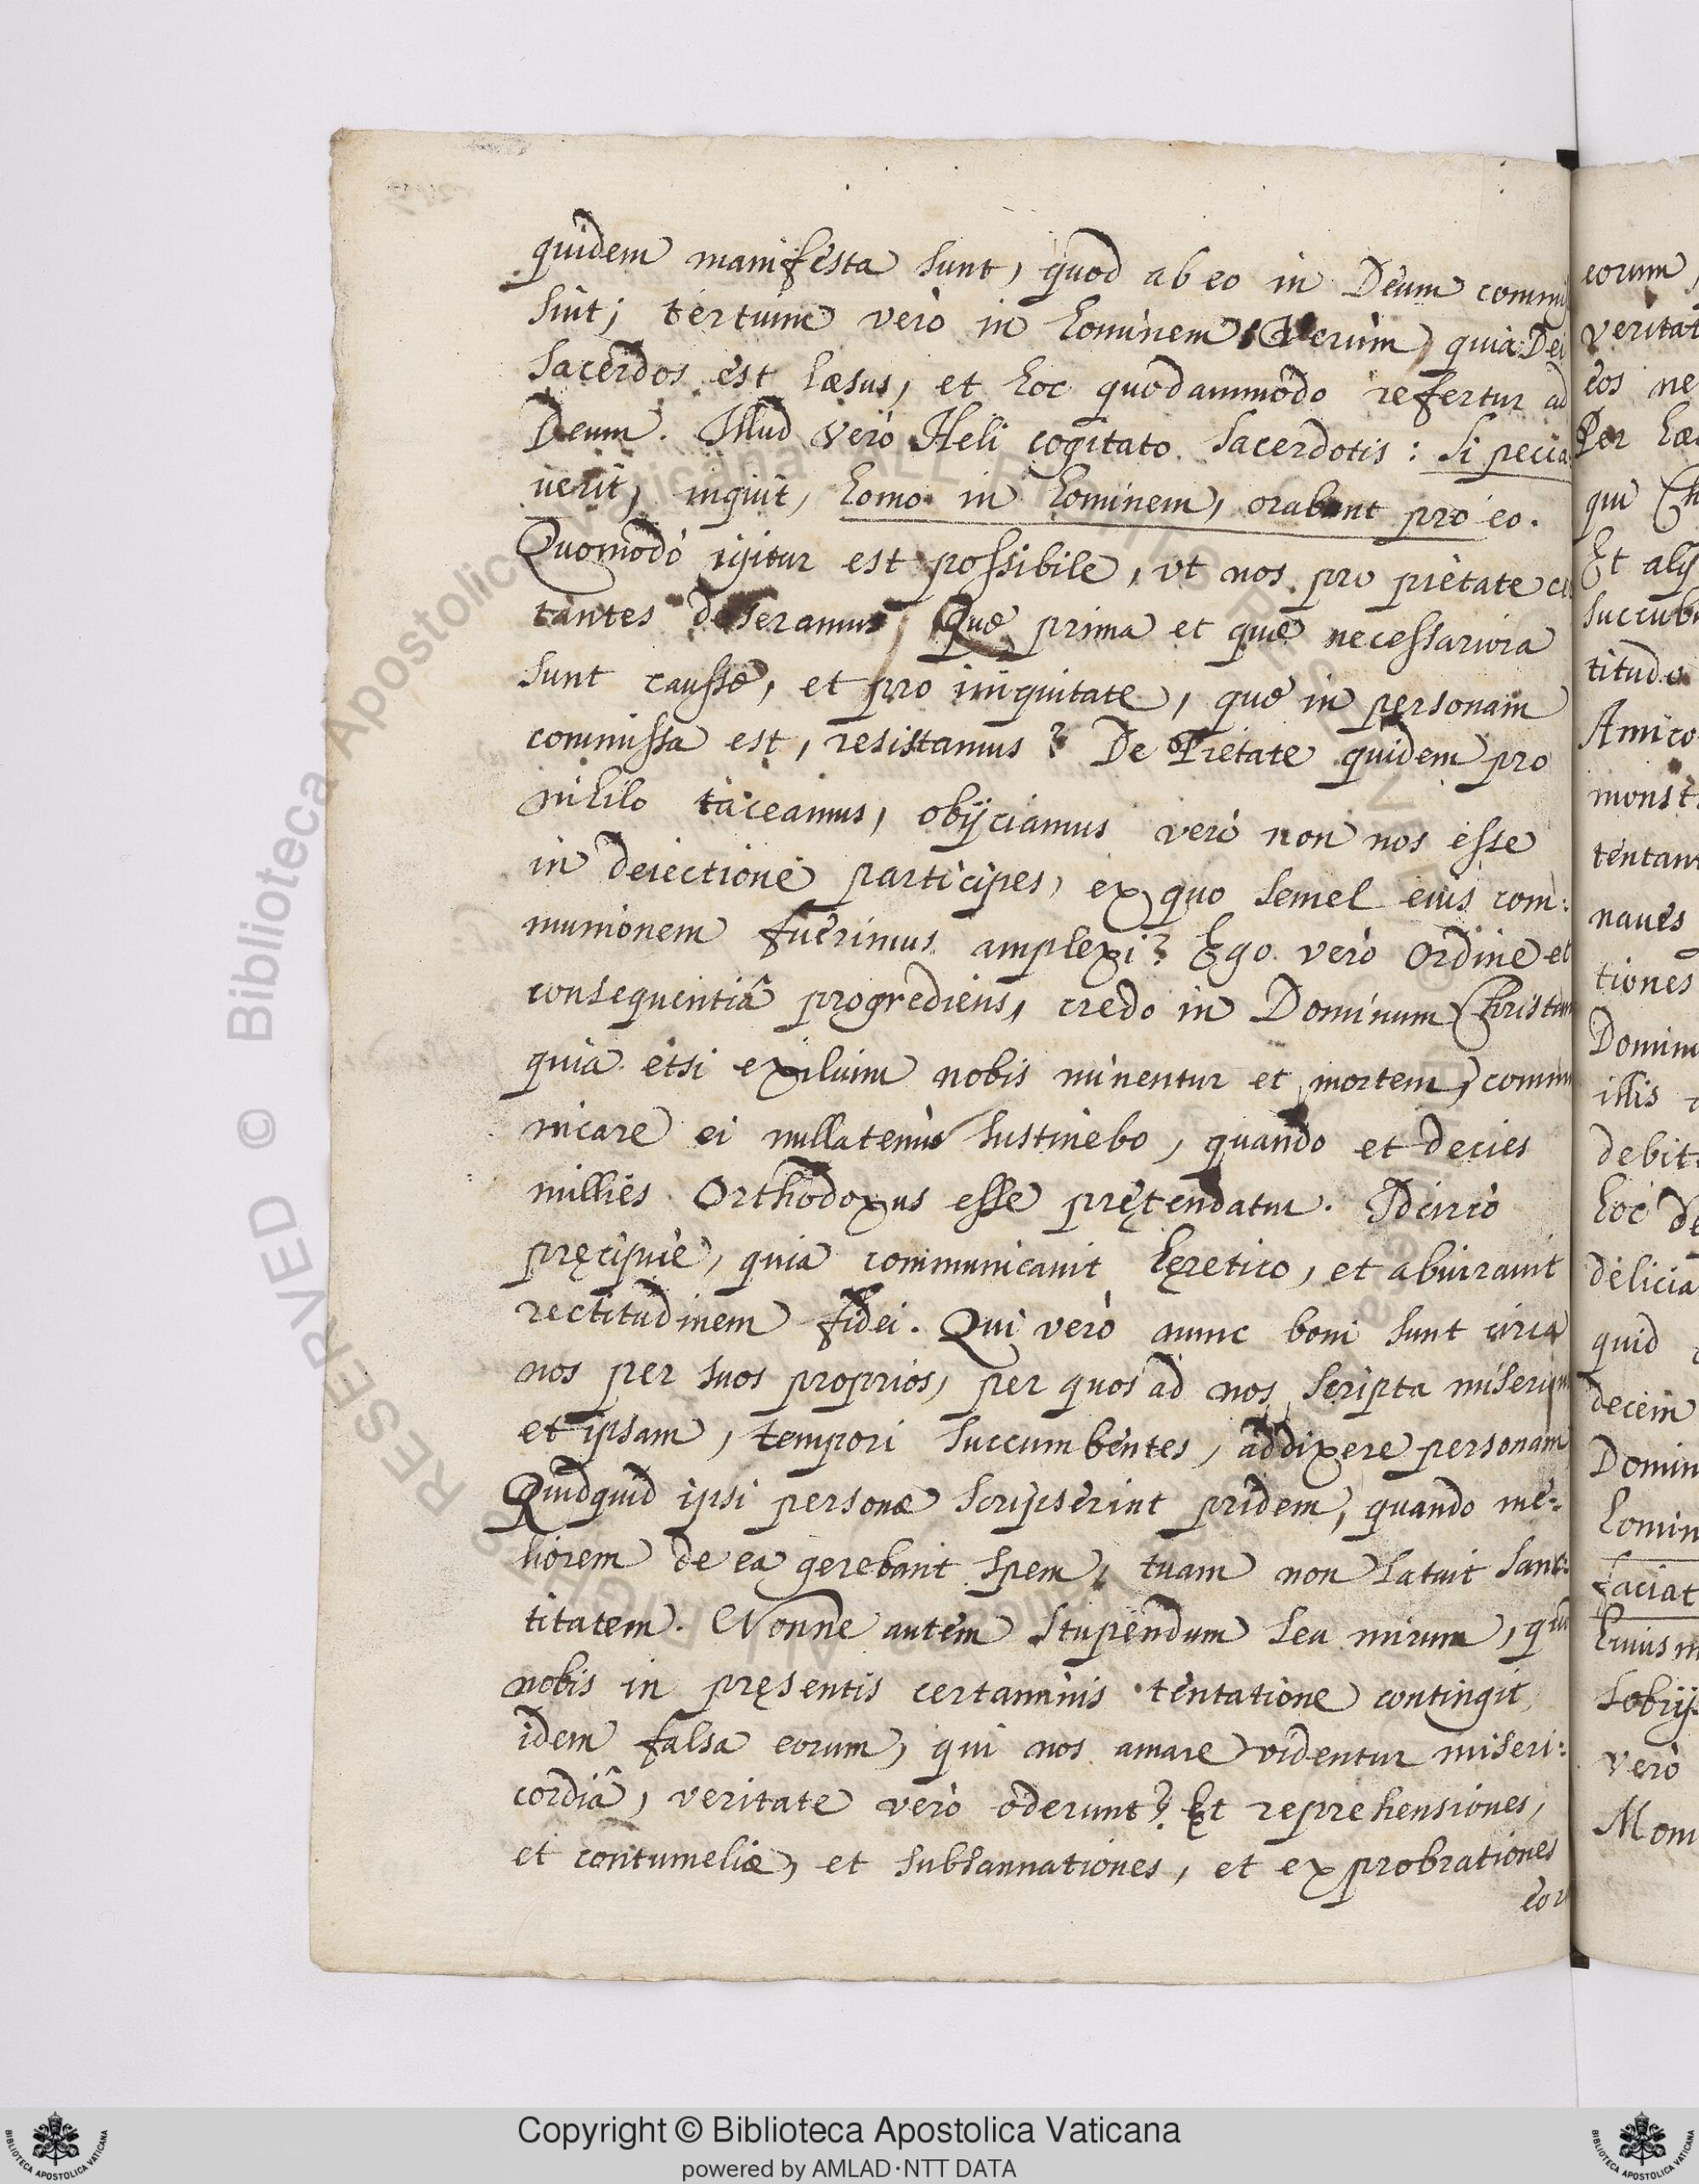 quidem manifesta sunt, quod ab eo in Deum commis
sint; tertium verò in hominem, Verùm, quia Dei
Sacerdos est læsus, et hoc quodammodo refertur ad
Deum. Illud verò Heli cogitato Sacerdotis: Si pecca
uerit, inquit, homo in hominem, orabunt pro eo.
Quomodò igitur est possibile, vt nos pro pietate
tantes deseramus, Quę prima et quę necessariora
sunt causse, et pro iniquitate, quę in personam
commissa est, resistamus? De Pietate quidem pro
nihilo taceamus, obijciamus verò non nos esse
in deiectione participes, ex quo semel eius com:
munionem fuerimus amplexi? Ego verò ordine et
consequentiâ progrediens, credo in Dominum Christum
quia etsi exilium nobis minentur et mortem, commu
nicare ei nullatenùs sustinebo, quando et decies
millies Orthodoxus esse prętendatur. Idcircò
pręcipuè, quia communicauit hęretico, et abiurauit
rectitudinem fidei. Qui verò nunc boni sunt circa
nos per suos proprios, per quos ad nos scripta miserunt
et ipsam, tempori succumbentes, addixere personam
Quidquid ipsi personæ scripserint pridem, quando me:
liorem de ea gerebant spem, tuam non latuit sanc:
titatem. Nonne autem stupendum seu mirum, qui
nobis in pręsentis certaminis tentatione contingit
idem falsa eorum, qui nos amare videntur miseri:
cordiâ, veritate verò oderunt? Et reprehensiones,
et contumeliæ, et subsannationes, et exprobrationes
eor
eorum,
veritat
eos ne
Per hæ
qui Ch
Et alij
succub
titudo
Amico
monst
tentant
naues
tiones
Domin
illis
debit
hoc de
delicia
quid
decem
Domin
homin
faciat
huius m
sobrij
verò
Mom
Copyright © Biblioteca Apostolica Vaticana
powered by AMLAD·NTT DATA